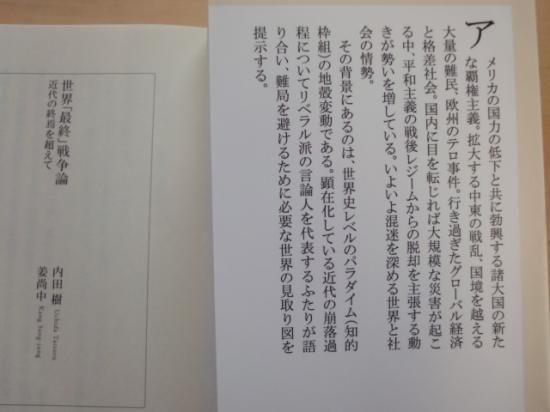 アメリカの国力の低下と共に勃興する諸大国の新た
な覇権主義。拡大する中東の戦乱、国境を越える
大量の難民、欧州のテロ事件。行き過ぎたグローバル経済
と格差社会。国内に目を転じれば大規模な災害が起こ
る中、平和主義の戦後レジームからの脱却を主張する動
きが勢いを増している。いよいよ混迷を深める世界と社
会の情勢。
その背景にあるのは、世界史レベルのパラダイム(知的
枠組)の地殻変動である。顕在化している近代の崩落過
程についてリベラル派の言論人を代表するふたりが語
り合い、難局を避けるために必要な世界の見取り図を
提示する。
世界「最終」戦争論
近代の終焉を超えて
内田 樹 Uchida Tatsuru
姜尚中 Kang Sang-jung